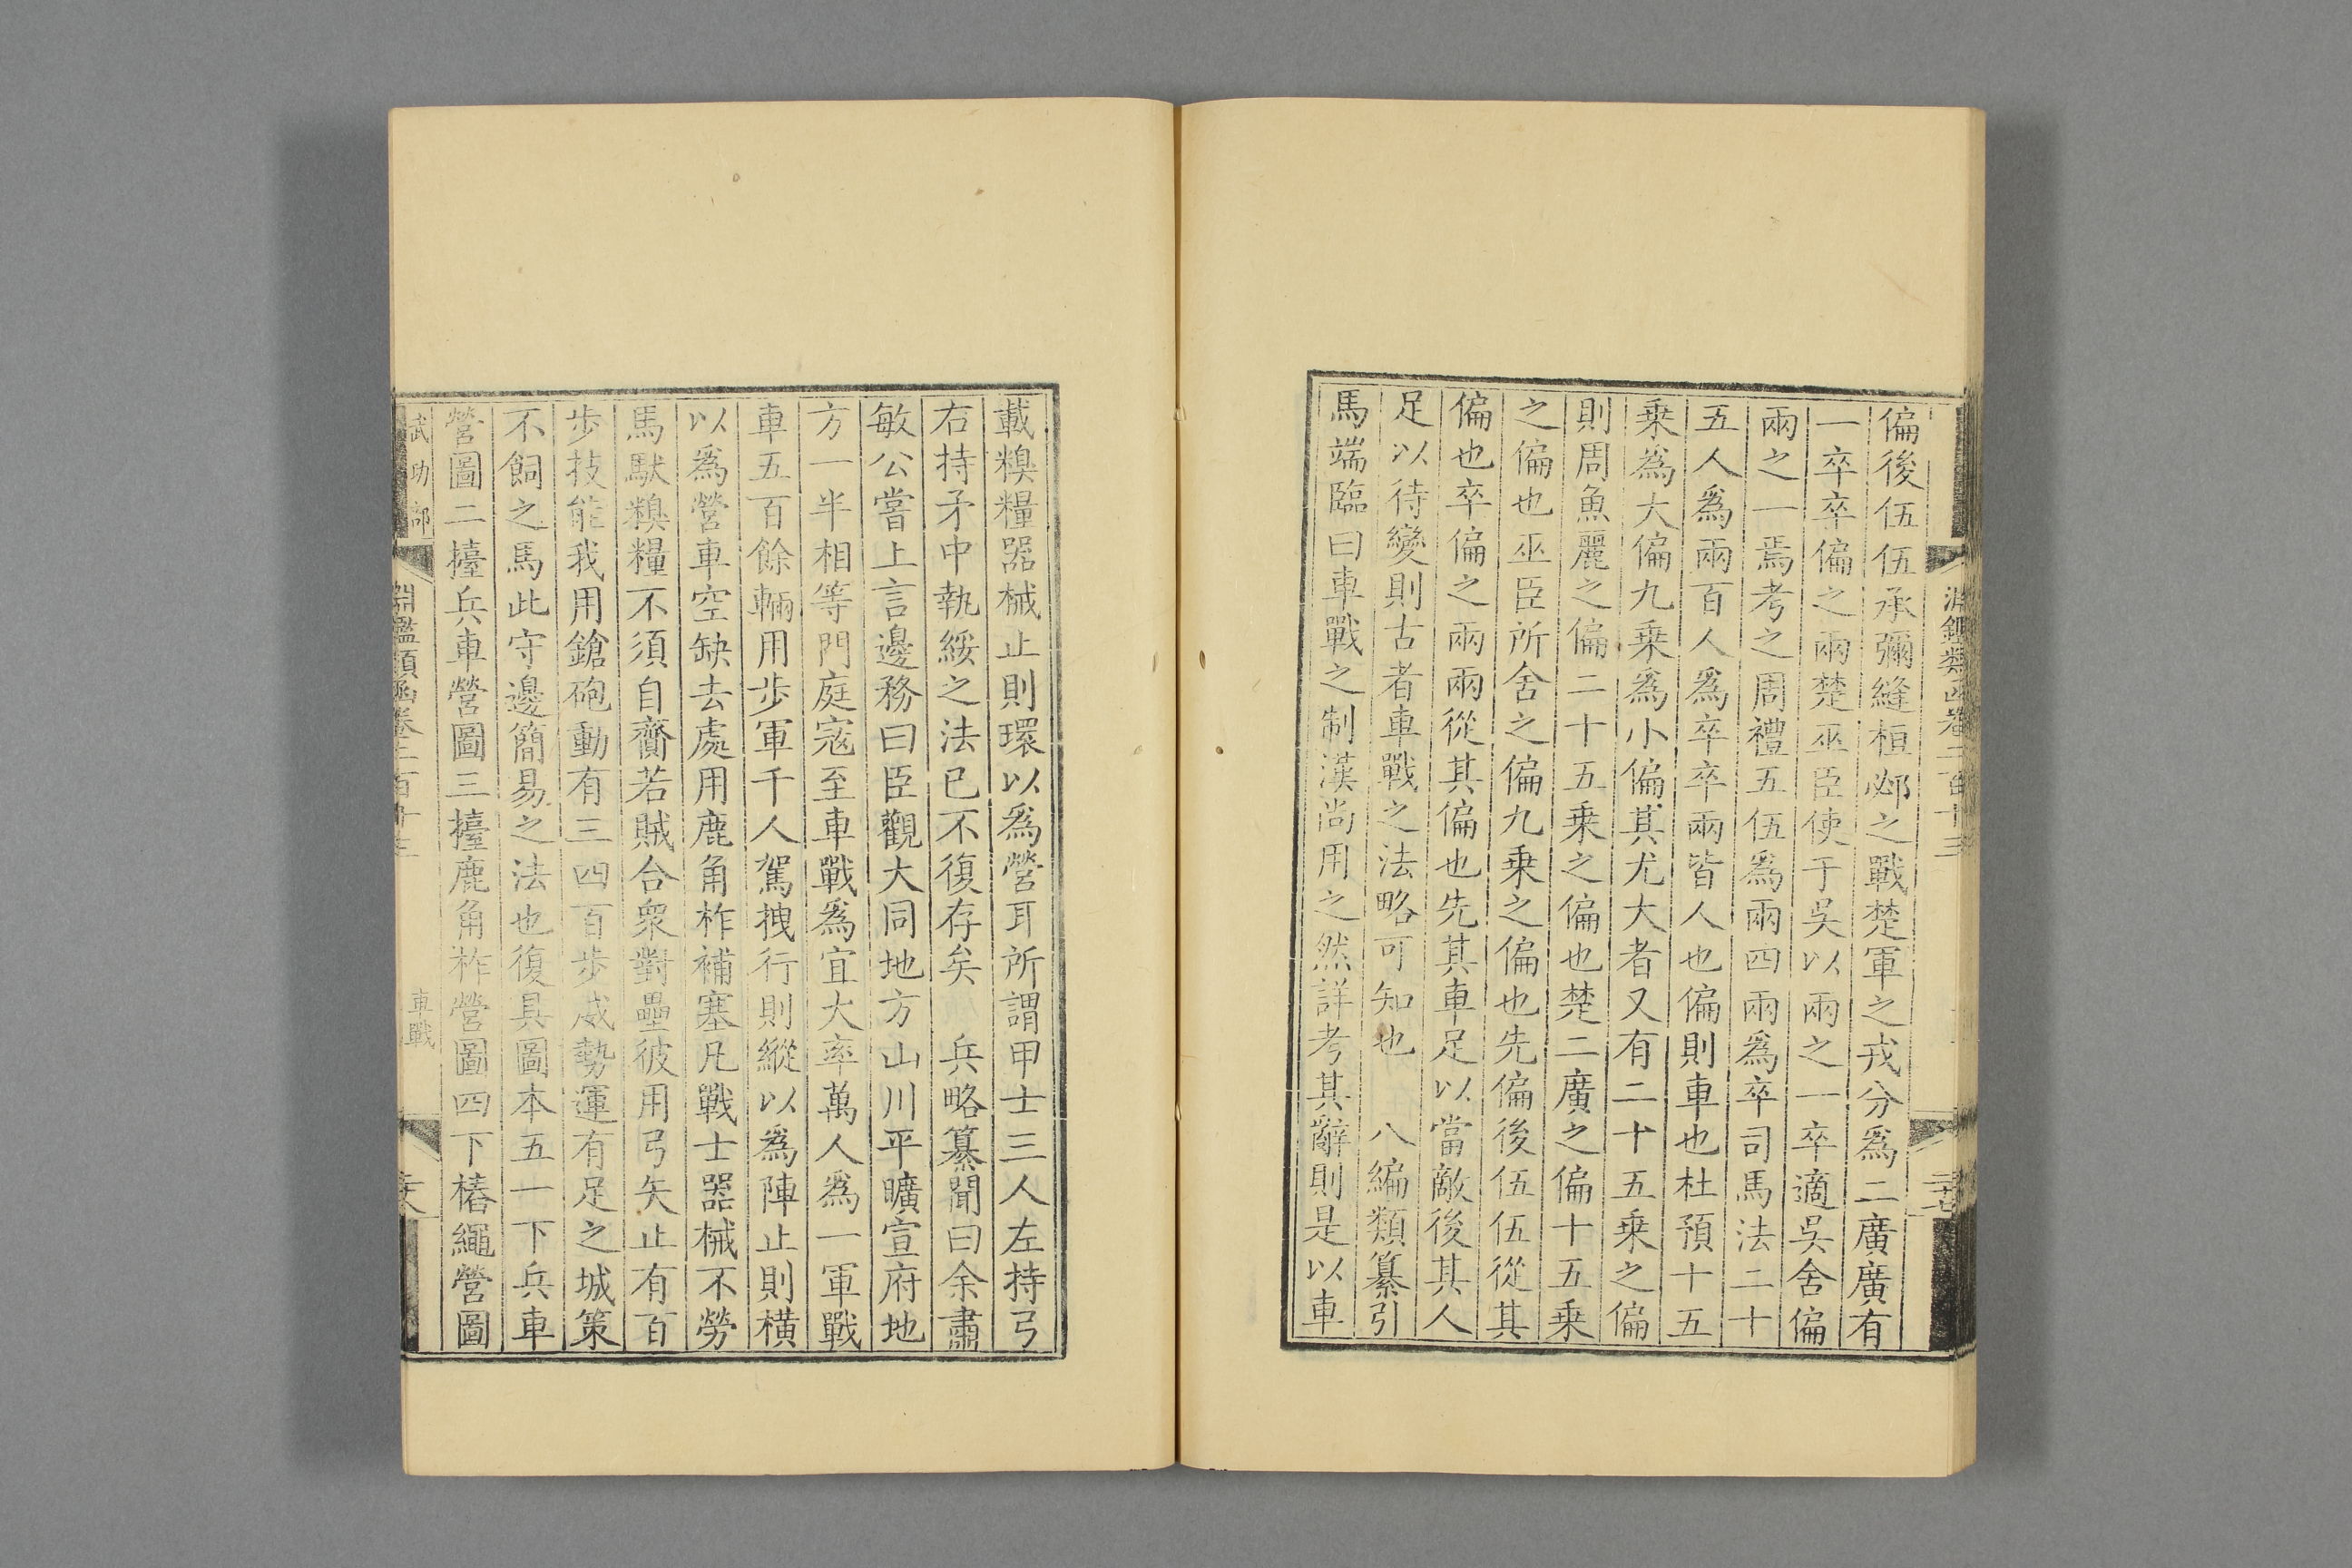 偏後伍伍承彌縫桓邲之戰楚軍之戎分爲二廣廣有
一卒卒偏之兩楚巫臣使于吳以兩之一卒適吳舍偏
兩之一焉考之周禮五伍爲兩四兩爲卒司馬法二十
五人爲兩百人爲卒卒兩皆人也偏則車也杜預十五
乘爲大偏九乘爲小偏其尤大者又有二十五乘之偏
則周魚麗之偏二十五乘之偏也楚二廣之偏十五乘
之偏也巫臣所舍之偏九乘之偏也先偏後伍伍從其
偏也卒偏之兩兩從其偏也先其車足以當敵後其人
足以待變則古者車戰之法略可知也 八編類纂引
馬端臨曰車戰之制漢尚用之然詳考其辭則是以車
載糗糧器械止則環以爲營耳所謂甲士三人左持弓
右持矛中執綏之法已不復存矣 兵略纂聞曰余肅
敏公嘗上言邊務曰臣觀大同地方山川平曠宣府地
方一半相等門庭寇至車戰爲宜大率萬人爲一軍戰
車五百餘輛用步軍千人駕拽行則縱以爲陣止則橫
以爲營車空缺去處用鹿角柞補塞凡戰士器械不勞
馬馱糗糧不須自齎若賊合衆對壘彼用弓矢止有百
步技能我用鎗砲動有三四百步威勢運有足之城策
不飼之馬此守邊簡易之法也復具圖本五一下兵車
營圖二擡兵車營圖三擡鹿角柞營圖四下樁繩營圖
武功部 淵鑑類函卷二百十三 車戰